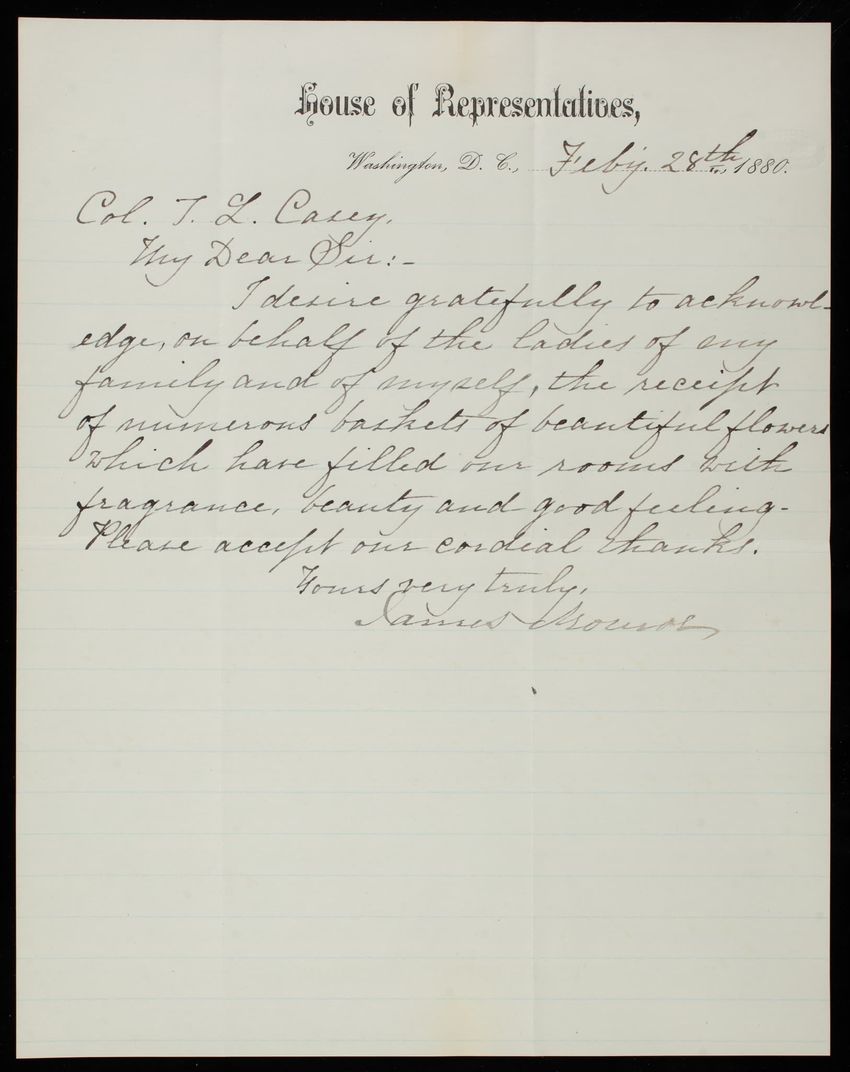 House of Representatives,
Washington, D. C., Feby. 28th, 1880.
Col. T. L. Casey.
My Dear Sir:-
I desire gratefully to acknowl-
edge, on behalf of the ladies of my
family and of myself, the receipt
of numerous baskets of beautiful flowers
which have filled our rooms with
fragrance, beauty and good feeling.
Please accept our cordial thanks.
Yours very truly,
James Monroe